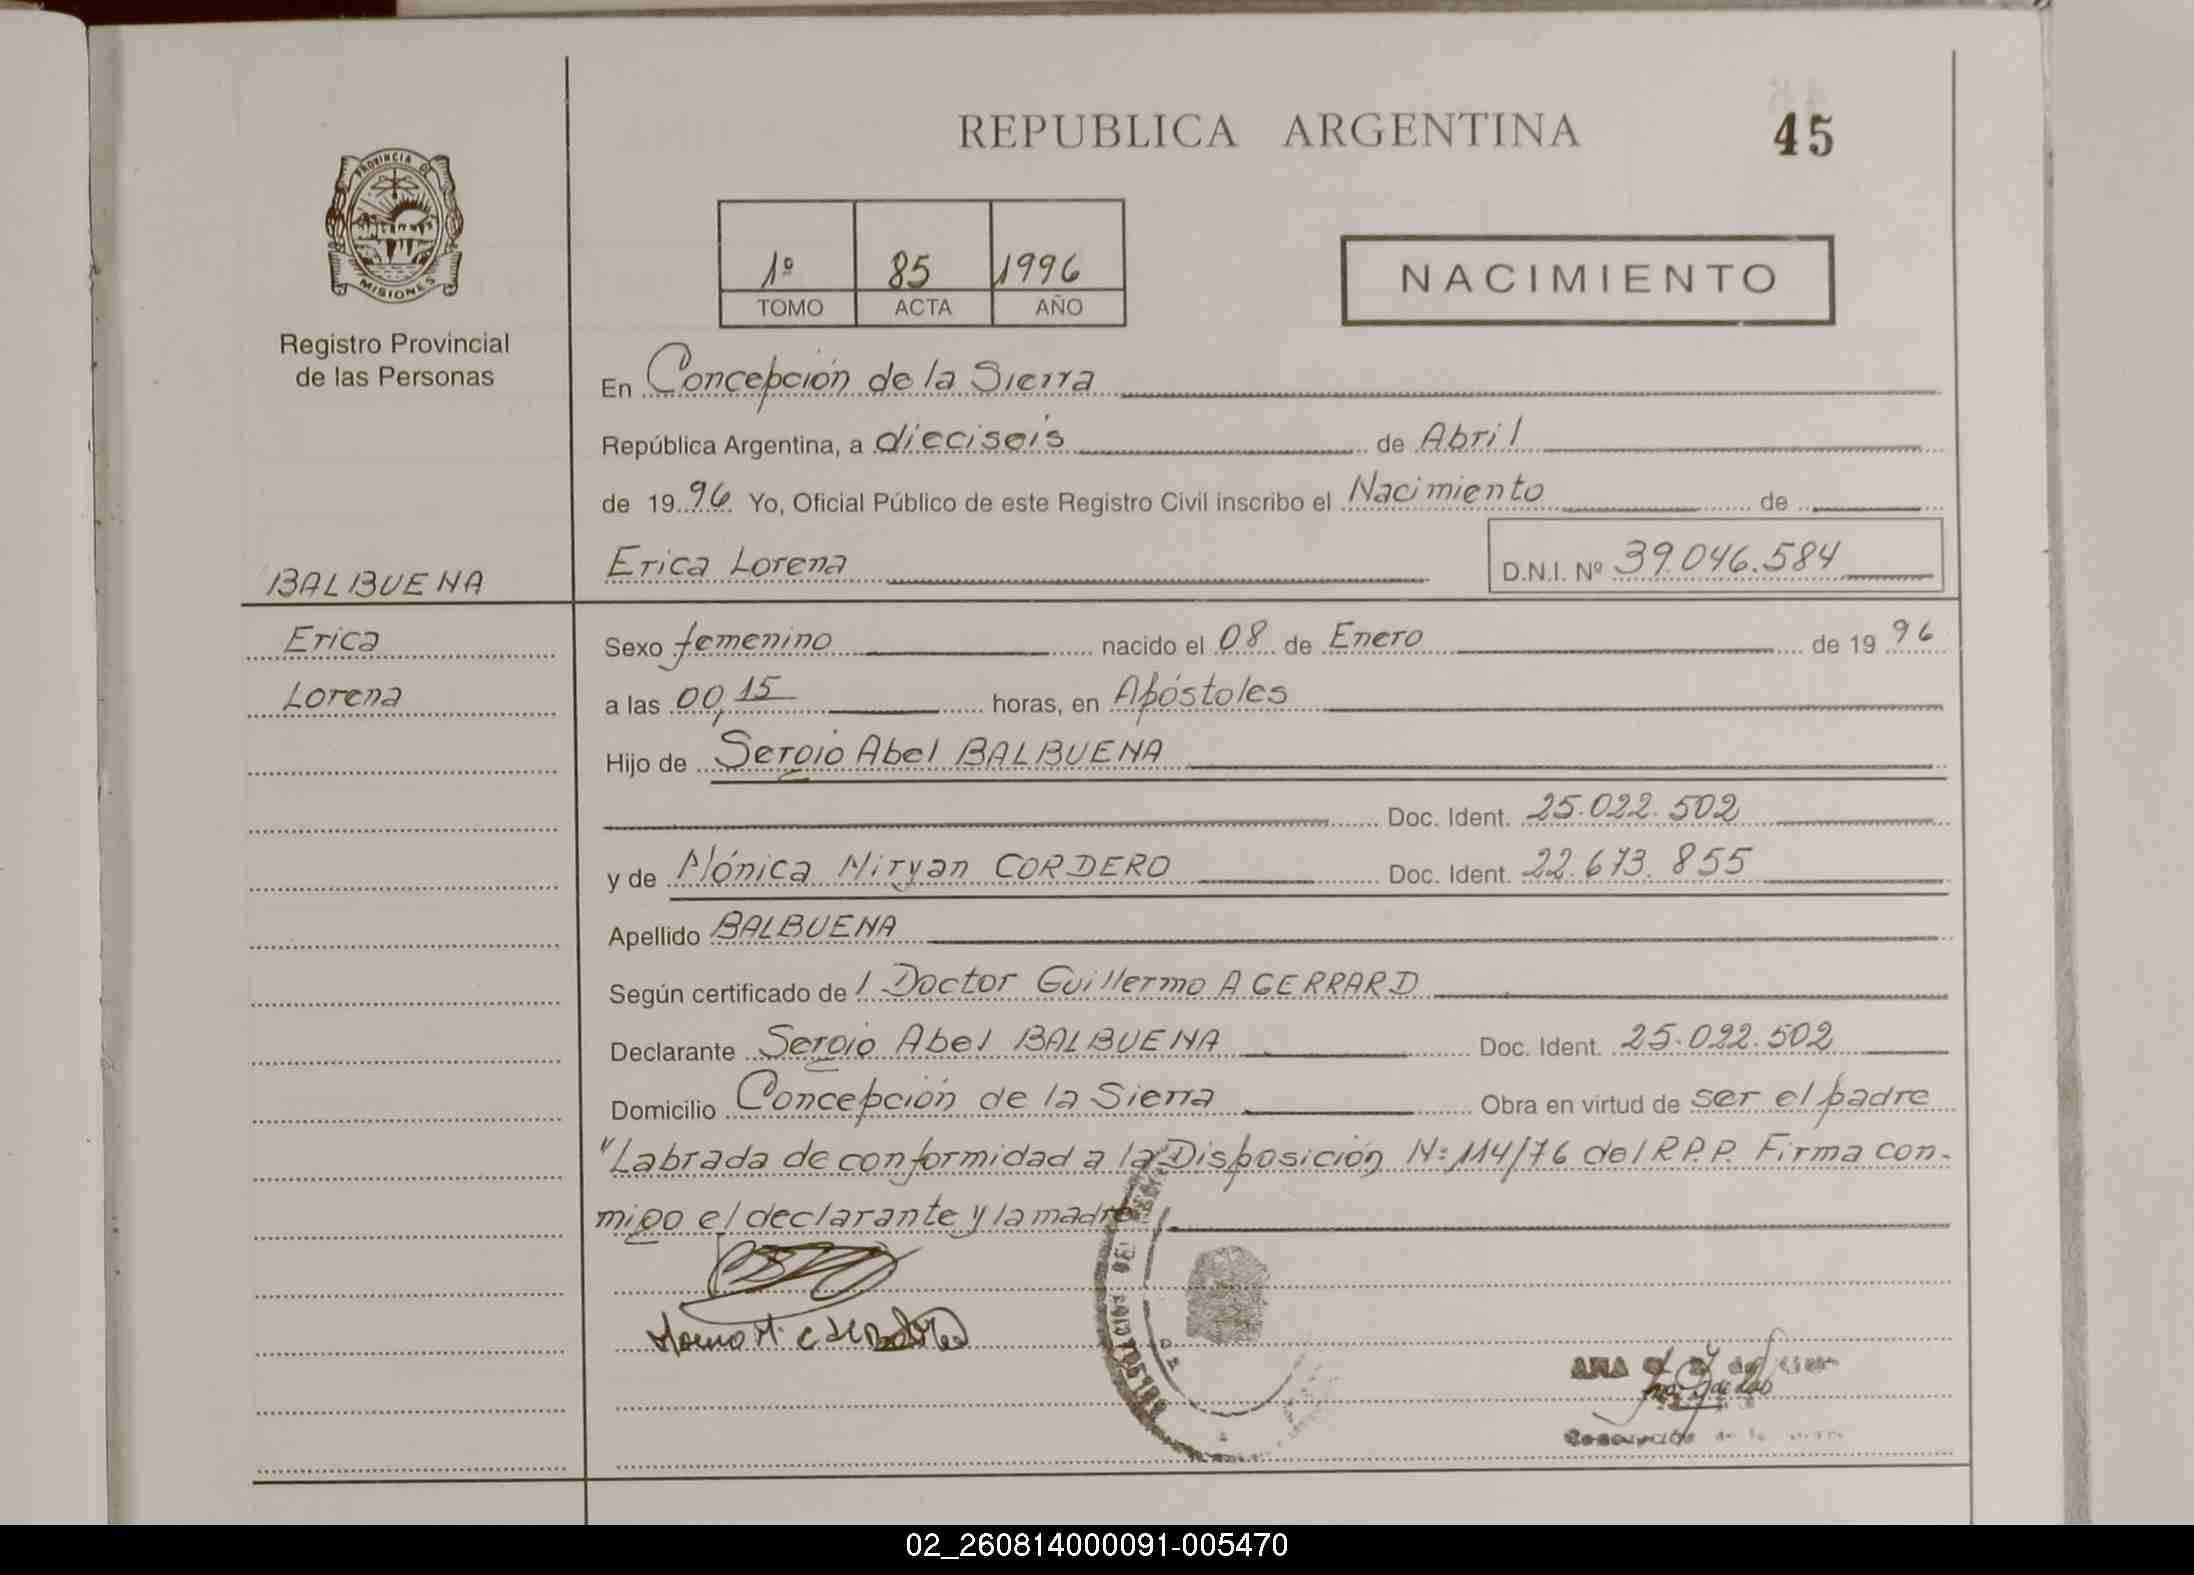 REPUBLICA ARGENTINA
45
PROVINCIA DE
MISIONES
Registro Provincial
de las Personas
1º 85 1996
TOMO ACTA AÑO
NACIMIENTO
En Concepción de la Sierra
República Argentina, a dieciseis de Abril
de 1996 Yo, Oficial Público de este Registro Civil inscribo el Nacimiento de
BALBUENA
Erica Lorena D.N.I. Nº 39.046.584
Erica
Lorena
Sexo femenino nacido el 08 de Enero de 1996
a las 00,15 horas, en Apóstoles
Hijo de Sergio Abel BALBUENA
Doc. Ident. 25.022.502
y de Mónica Miryan CORDERO Doc. Ident. 22.673.855
Apellido BALBUENA
Según certificado de l Doctor Guillermo A GERRARD
Declarante Sergio Abel BALBUENA Doc. Ident. 25.022.502
Domicilio Concepción de la Sierra Obra en virtud de ser el padre
"Labrada de conformidad a la Disposición N: 114/76 del R.P.P. Firma con-
migo el declarante y la madre
ANA
02_260814000091-005470